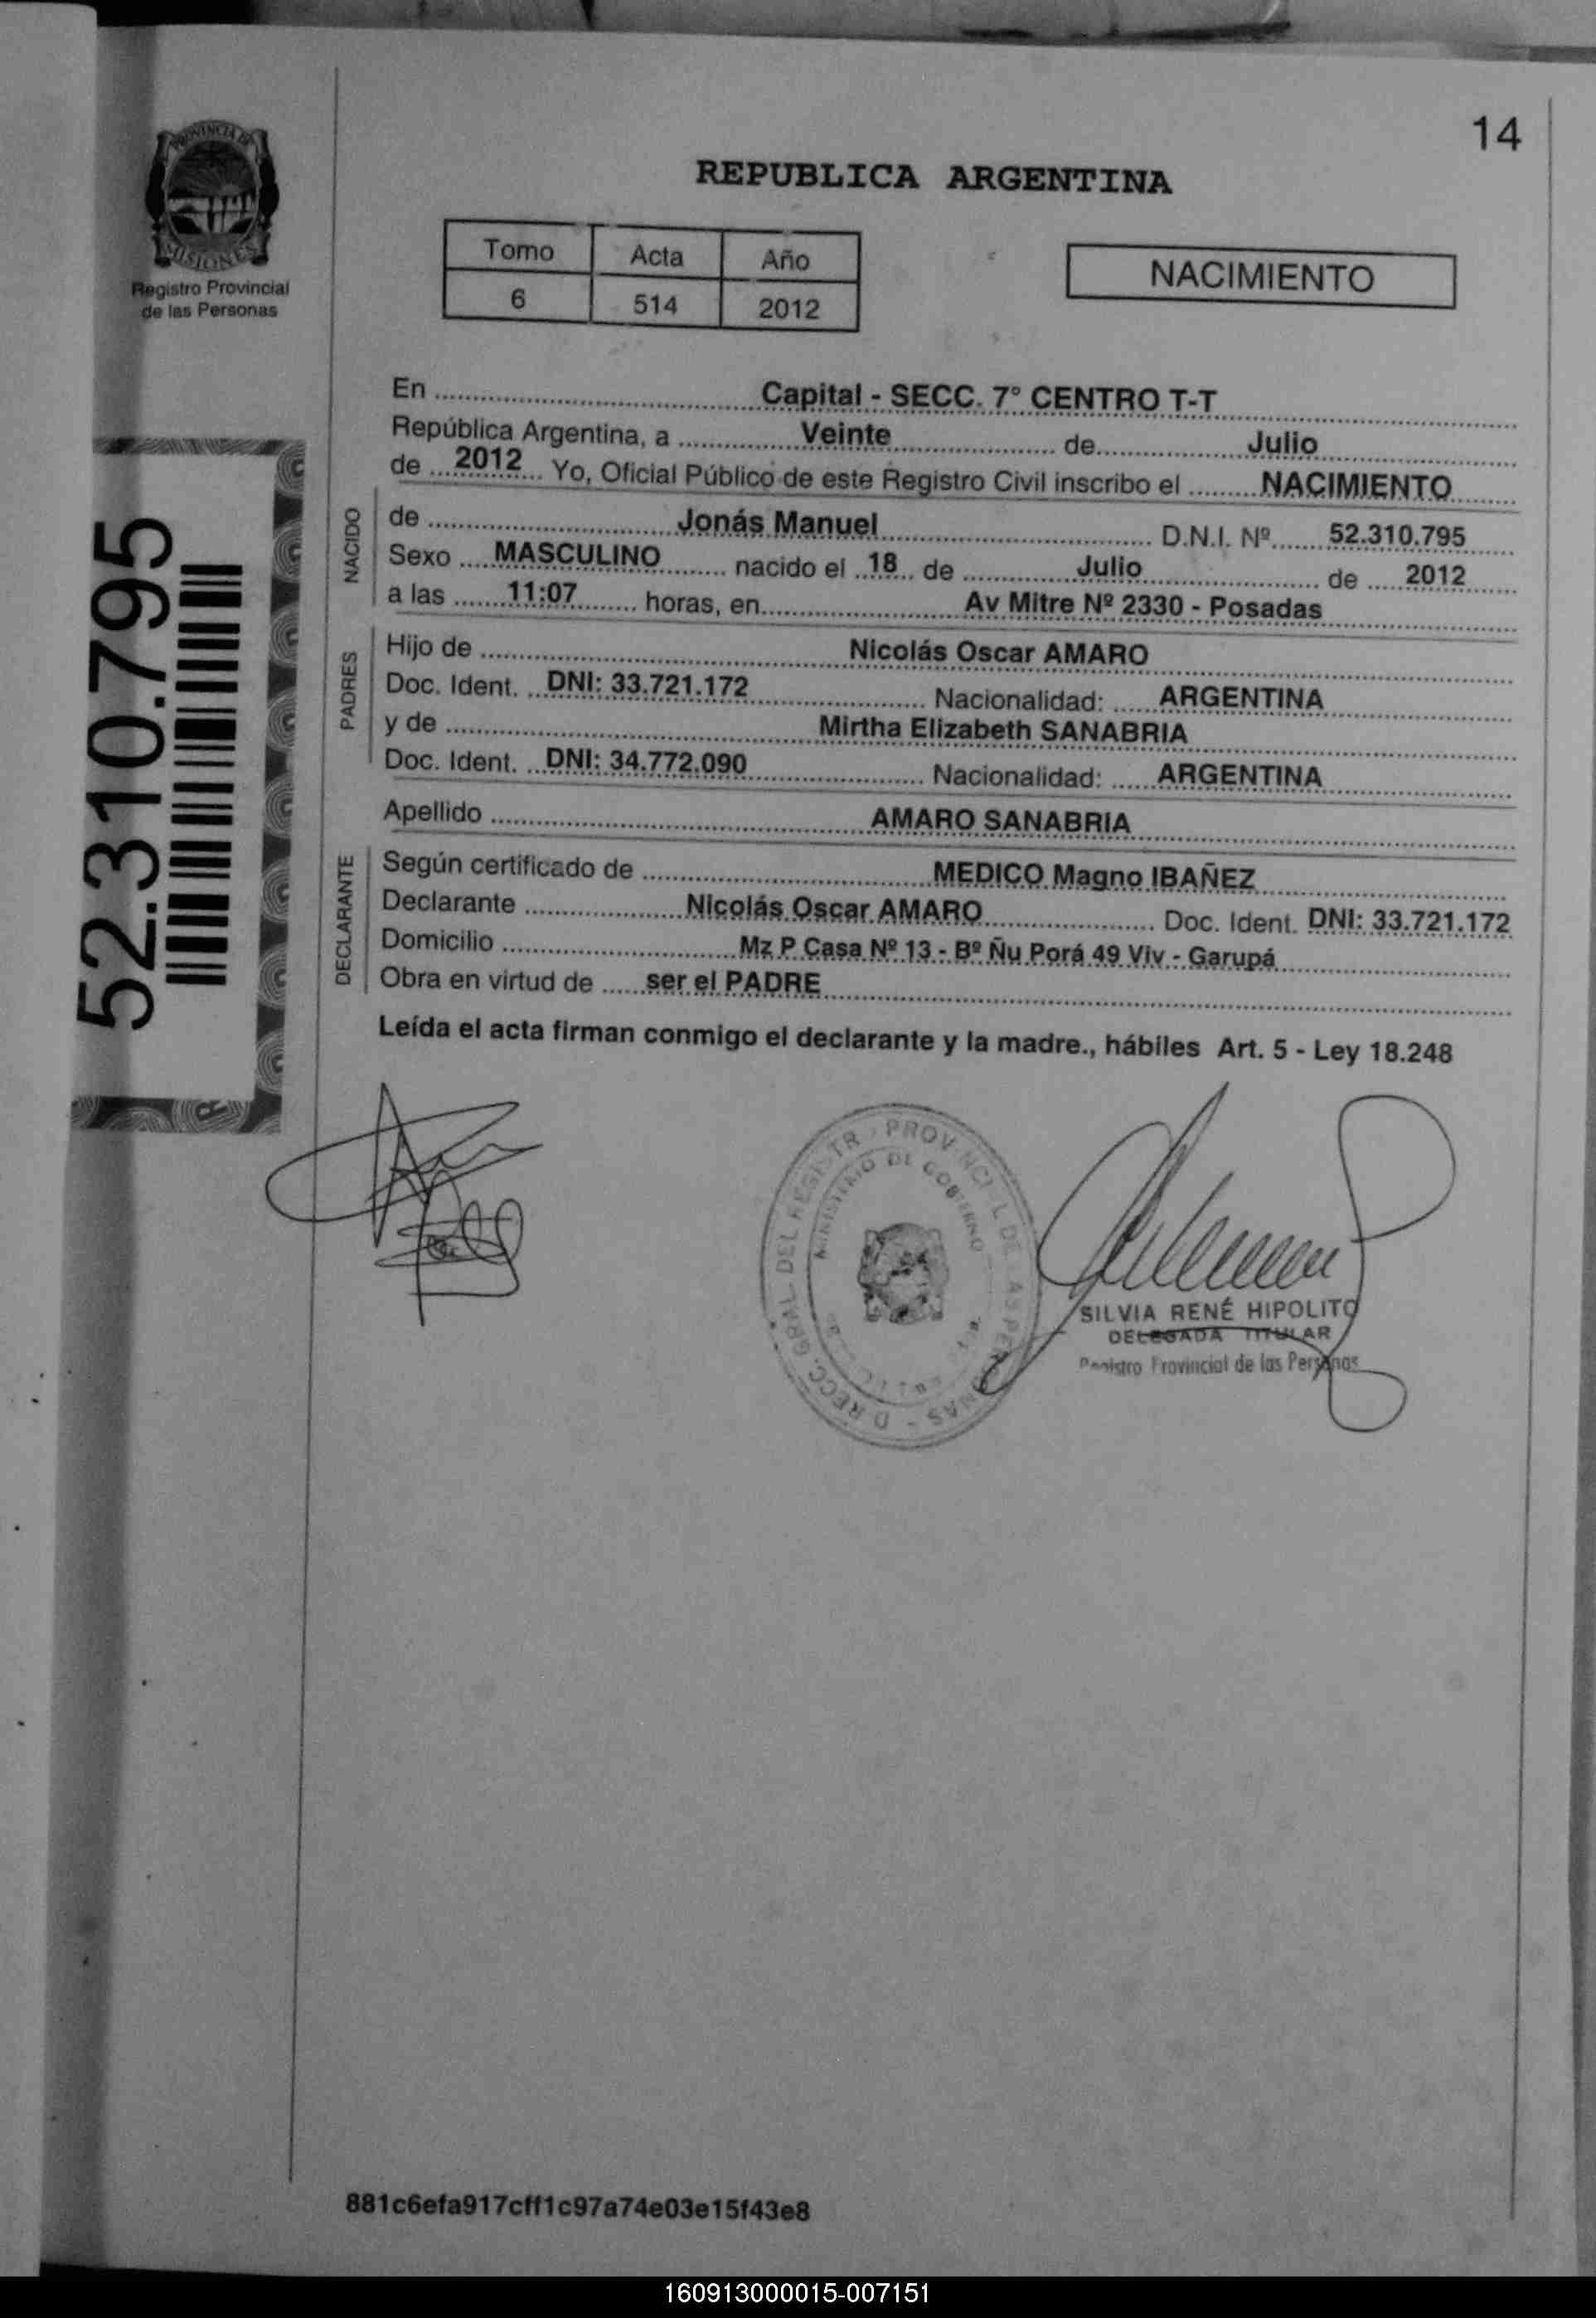 14
PROVINCIA DE
MISIONES
Registro Provincial
de las Personas
REPUBLICA ARGENTINA
Tomo Acta Año
6 514 2012
NACIMIENTO
En Capital - SECC. 7° CENTRO T-T
República Argentina, a Veinte de Julio
de 2012 Yo, Oficial Público de este Registro Civil inscribo el NACIMIENTO
NACIDO
de Jonás Manuel D.N.I. Nº 52.310.795
Sexo MASCULINO nacido el 18 de Julio de 2012
a las 11:07 horas, en Av Mitre Nº 2330 - Posadas
PADRES
Hijo de Nicolás Oscar AMARO
Doc. Ident. DNI: 33.721.172 Nacionalidad: ARGENTINA
y de Mirtha Elizabeth SANABRIA
Doc. Ident. DNI: 34.772.090 Nacionalidad: ARGENTINA
Apellido AMARO SANABRIA
DECLARANTE
Según certificado de MEDICO Magno IBAÑEZ
Declarante Nicolás Oscar AMARO Doc. Ident. DNI: 33.721.172
Domicilio Mz P Casa Nº 13 - Bº Ñu Porá 49 Viv - Garupá
Obra en virtud de ser el PADRE
Leída el acta firman conmigo el declarante y la madre., hábiles Art. 5 - Ley 18.248
52.310.795
MINISTERIO DE GOBIERNO
SILVIA RENÉ HIPOLITO
DELEGADA TITULAR
Registro Provincial de las Personas
881c6efa917cff1c97a74e03e15f43e8
160913000015-007151